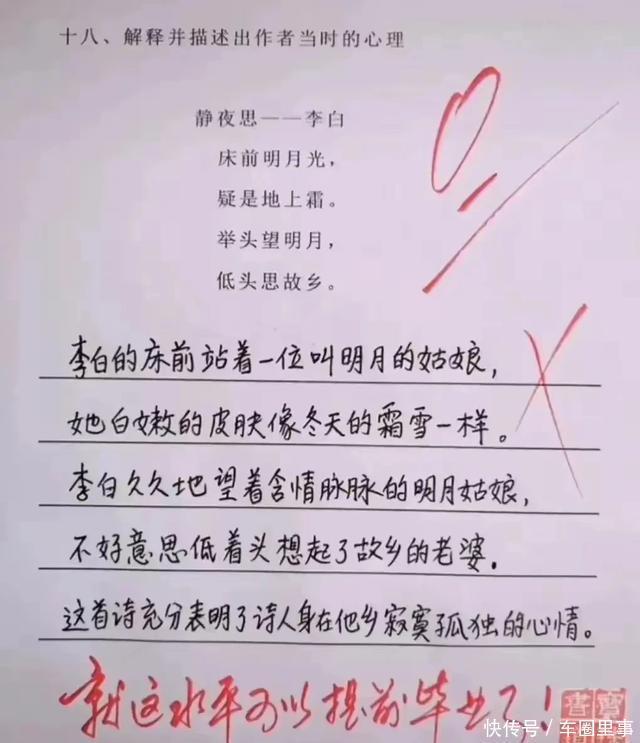 十八、解释并描述出作者当时的心理
静夜思——李白
床前明月光，
疑是地上霜。
举头望明月，
低头思故乡。
0
李白的床前站着一位叫明月的姑娘，
她白嫩的皮肤像冬天的霜雪一样。
李白久久地望着含情脉脉的明月姑娘，
不好意思低着头想起了故乡的老婆。
这首诗充分表明了诗人身在他乡寂寞孤独的心情。
就这水平可以提前毕业了！
快传号/车圈里事